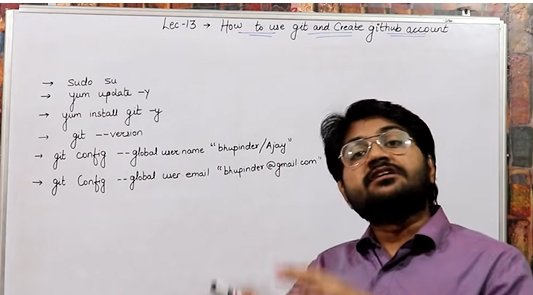 Lec-13 → How to use git and Create github account
→ sudo su
→ yum update -y
→ yum install git -y
→ git --version
→ git config --global user name "bhupinder/Ajay"
→ git Config --global user email "bhupinder@gmail.com"